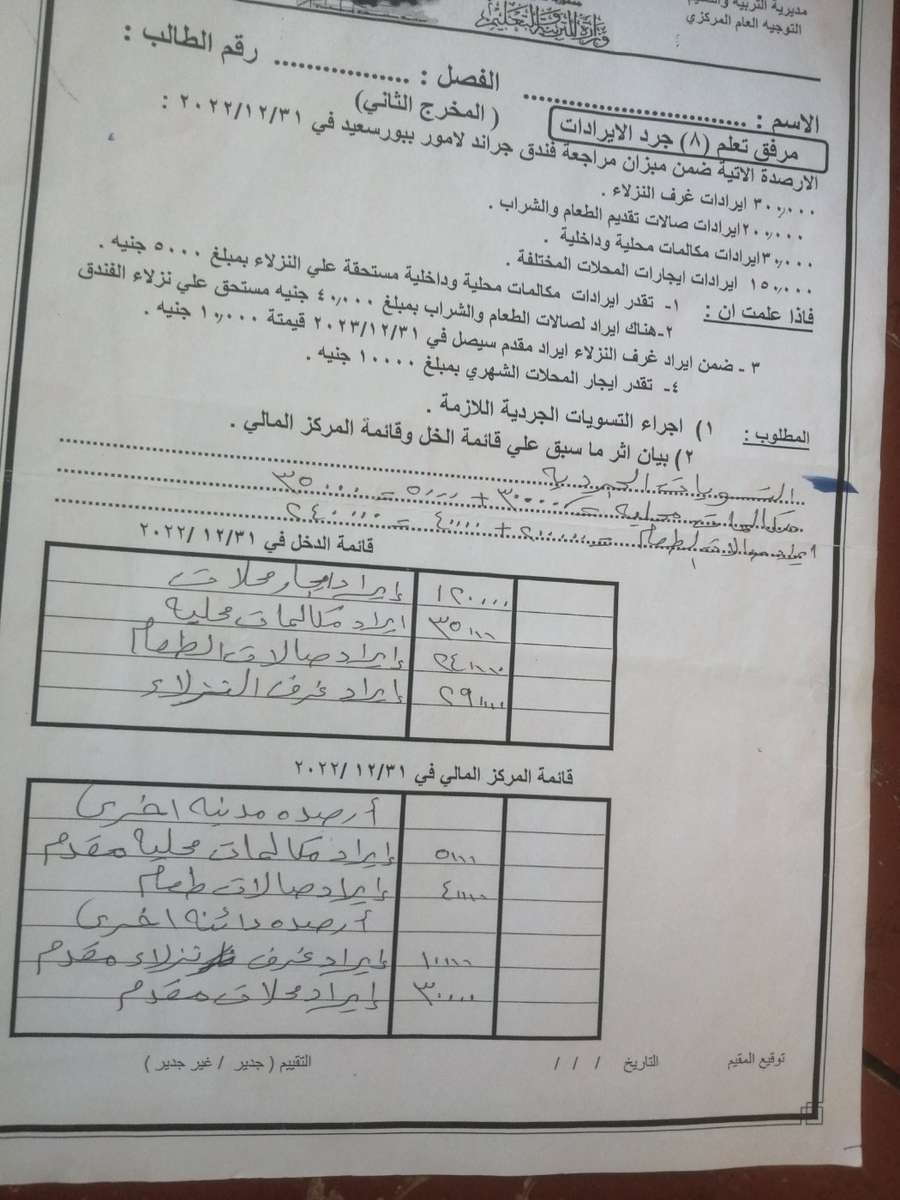 مديرية التربية والتعليم
التوجيه العام المركزي
وزارة التربية والتعليم
الاسم : .............................. الفصل : ................ رقم الطالب :
مرفق تعلم (٨) جرد الايرادات ( المخرج الثاني)
الارصدة الاتية ضمن ميزان مراجعة فندق جراند لامور ببورسعيد في ٢٠٢٢/١٢/٣١ :
٣٠٠,٠٠٠ ايرادات غرف النزلاء .
٢٠٠,٠٠٠ ايرادات صالات تقديم الطعام والشراب .
٣٠,٠٠٠ ايرادات مكالمات محلية وداخلية .
١٥٠,٠٠٠ ايرادات ايجارات المحلات المختلفة .
فاذا علمت ان : ١- تقدر ايرادات مكالمات محلية وداخلية مستحقة علي النزلاء بمبلغ ٥٠٠٠ جنيه .
٢-هناك ايراد لصالات الطعام والشراب بمبلغ ٤٠,٠٠٠ جنيه مستحق علي نزلاء الفندق
٣ - ضمن ايراد غرف النزلاء ايراد مقدم سيصل في ٢٠٢٣/١٢/٣١ قيمتة ١٠,٠٠٠ جنيه .
٤- تقدر ايجار المحلات الشهري بمبلغ ١٠٠٠٠ جنيه .
المطلوب : ١) اجراء التسويات الجردية اللازمة .
٢) بيان اثر ما سبق علي قائمة الخل وقائمة المركز المالي .
التسويات الجردية
مكالمات محلية = ٣٠٠٠٠ + ٥٠٠٠ = ٣٥٠٠٠
ايراد صالات الطعام = ٢٠٠٠٠٠ + ٤٠٠٠٠ = ٢٤٠٠٠٠
قائمة الدخل في ٢٠٢٢/١٢/٣١
١٢٠٠٠٠ إيراد إيجار محلات
٣٥٠٠٠ ايراد مكالمات محلية
٢٤٠٠٠٠ إيراد صالات الطعام
٢٩٠٠٠ إيراد غرف النزلاء
قائمة المركز المالي في ٢٠٢٢/١٢/٣١
أرصده مدينه اخرى
٥٠٠٠ إيراد مكالمات محلية مقدم
٤٠٠٠٠ إيراد صالات طعام
أرصده دائنه اخرى
١٠٠٠٠ إيراد غرف نزلاء مقدم
٣٠٠٠٠ إيراد محلات مقدم
توقيع المقيم التاريخ / / / التقييم ( جدير / غير جدير )